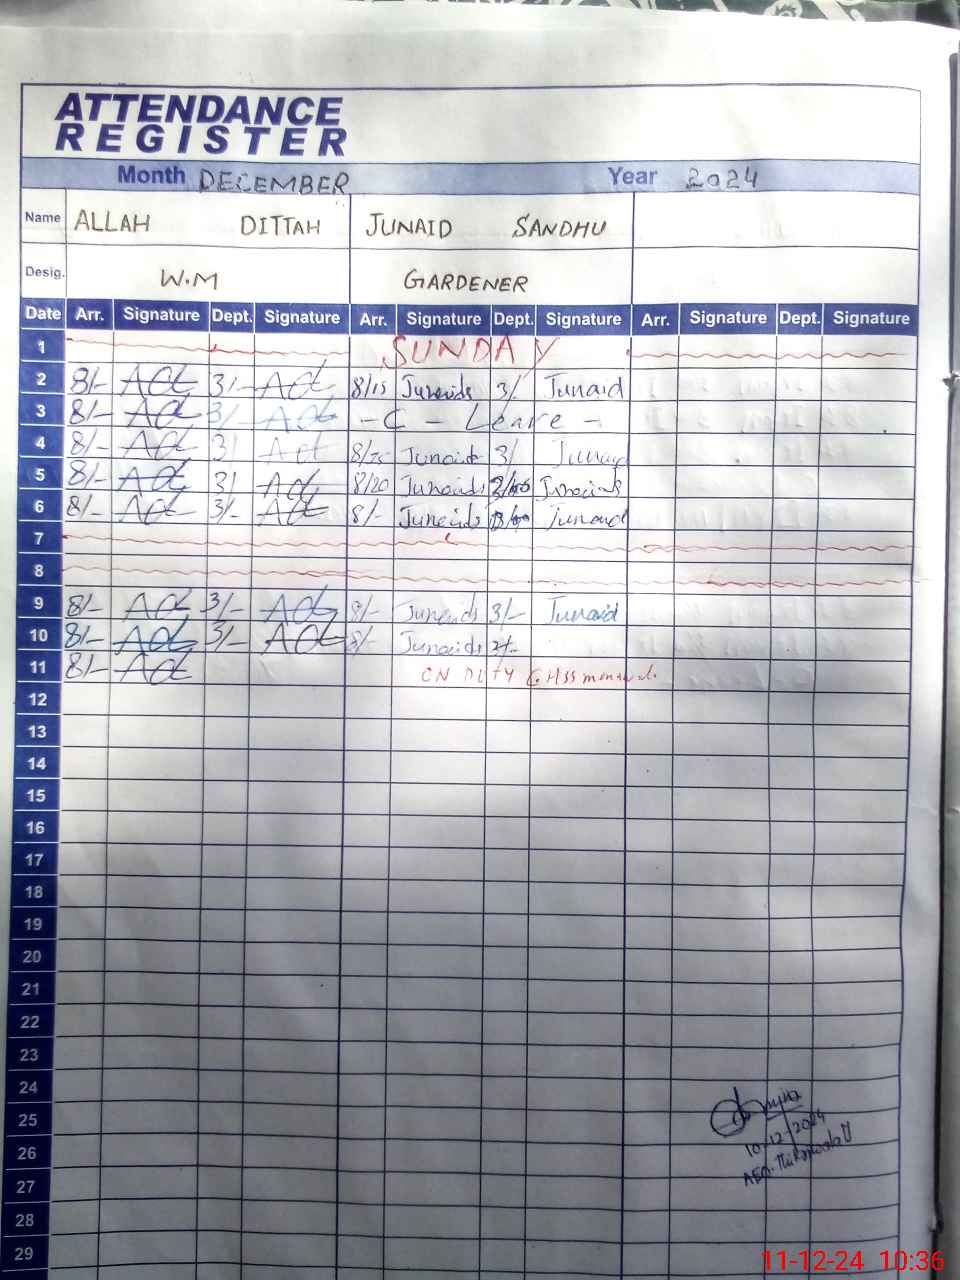 ATTENDANCE
REGISTER
Month DECEMBER Year 2024
Name ALLAH DITTAH JUNAID SANDHU
Desig. W.M GARDENER
Date Arr. Signature Dept. Signature Arr. Signature Dept. Signature Arr. Signature Dept. Signature
1 SUNDAY
2 8/- Ad 3/- Ad 8/15 Junaids 3/ Junaid
3 8/- Ad 3/- Ad - C - Leave -
4 8/- Ad 3/ Ad 8/25 Junaids 3/ Junaid
5 8/- Ad 3/ Ad 8/20 Junaids Junaids
6 8/- Ad 3/- Ad 8/- Junaids Junaid
7
8
9 8/- Ad 3/- Ad 8/- Junaids 3/- Junaid
10 8/- Ad 3/- Ad 8/- Junaids
11 8/- Ad ON DUTY
12
13
14
15
16
17
18
19
20
21
22
23
24
25
10-12-2024
26
AEO
27
28
29
11-12-24 10:36